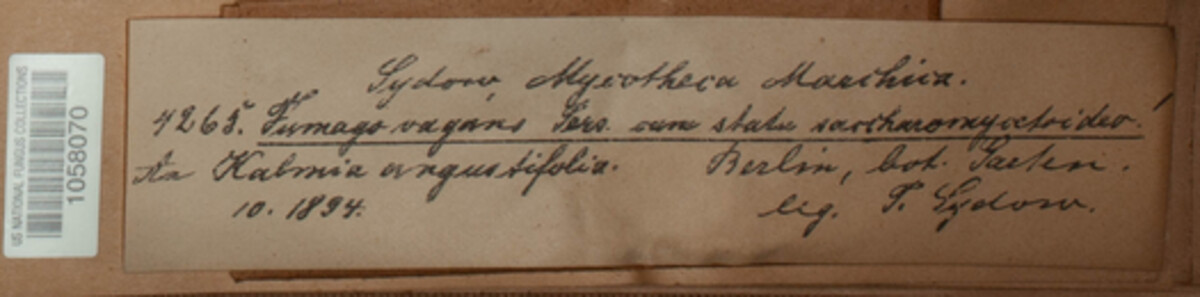 Sydow, Mycotheca Marchica.
4265. Fumago vagans Pers. cum statu saccharomycetoideo.
An Kalmia angustifolia. Berlin, bot. Garten.
10. 1894. leg. P. Sydow.
US NATIONAL FUNGUS COLLECTIONS
1058070